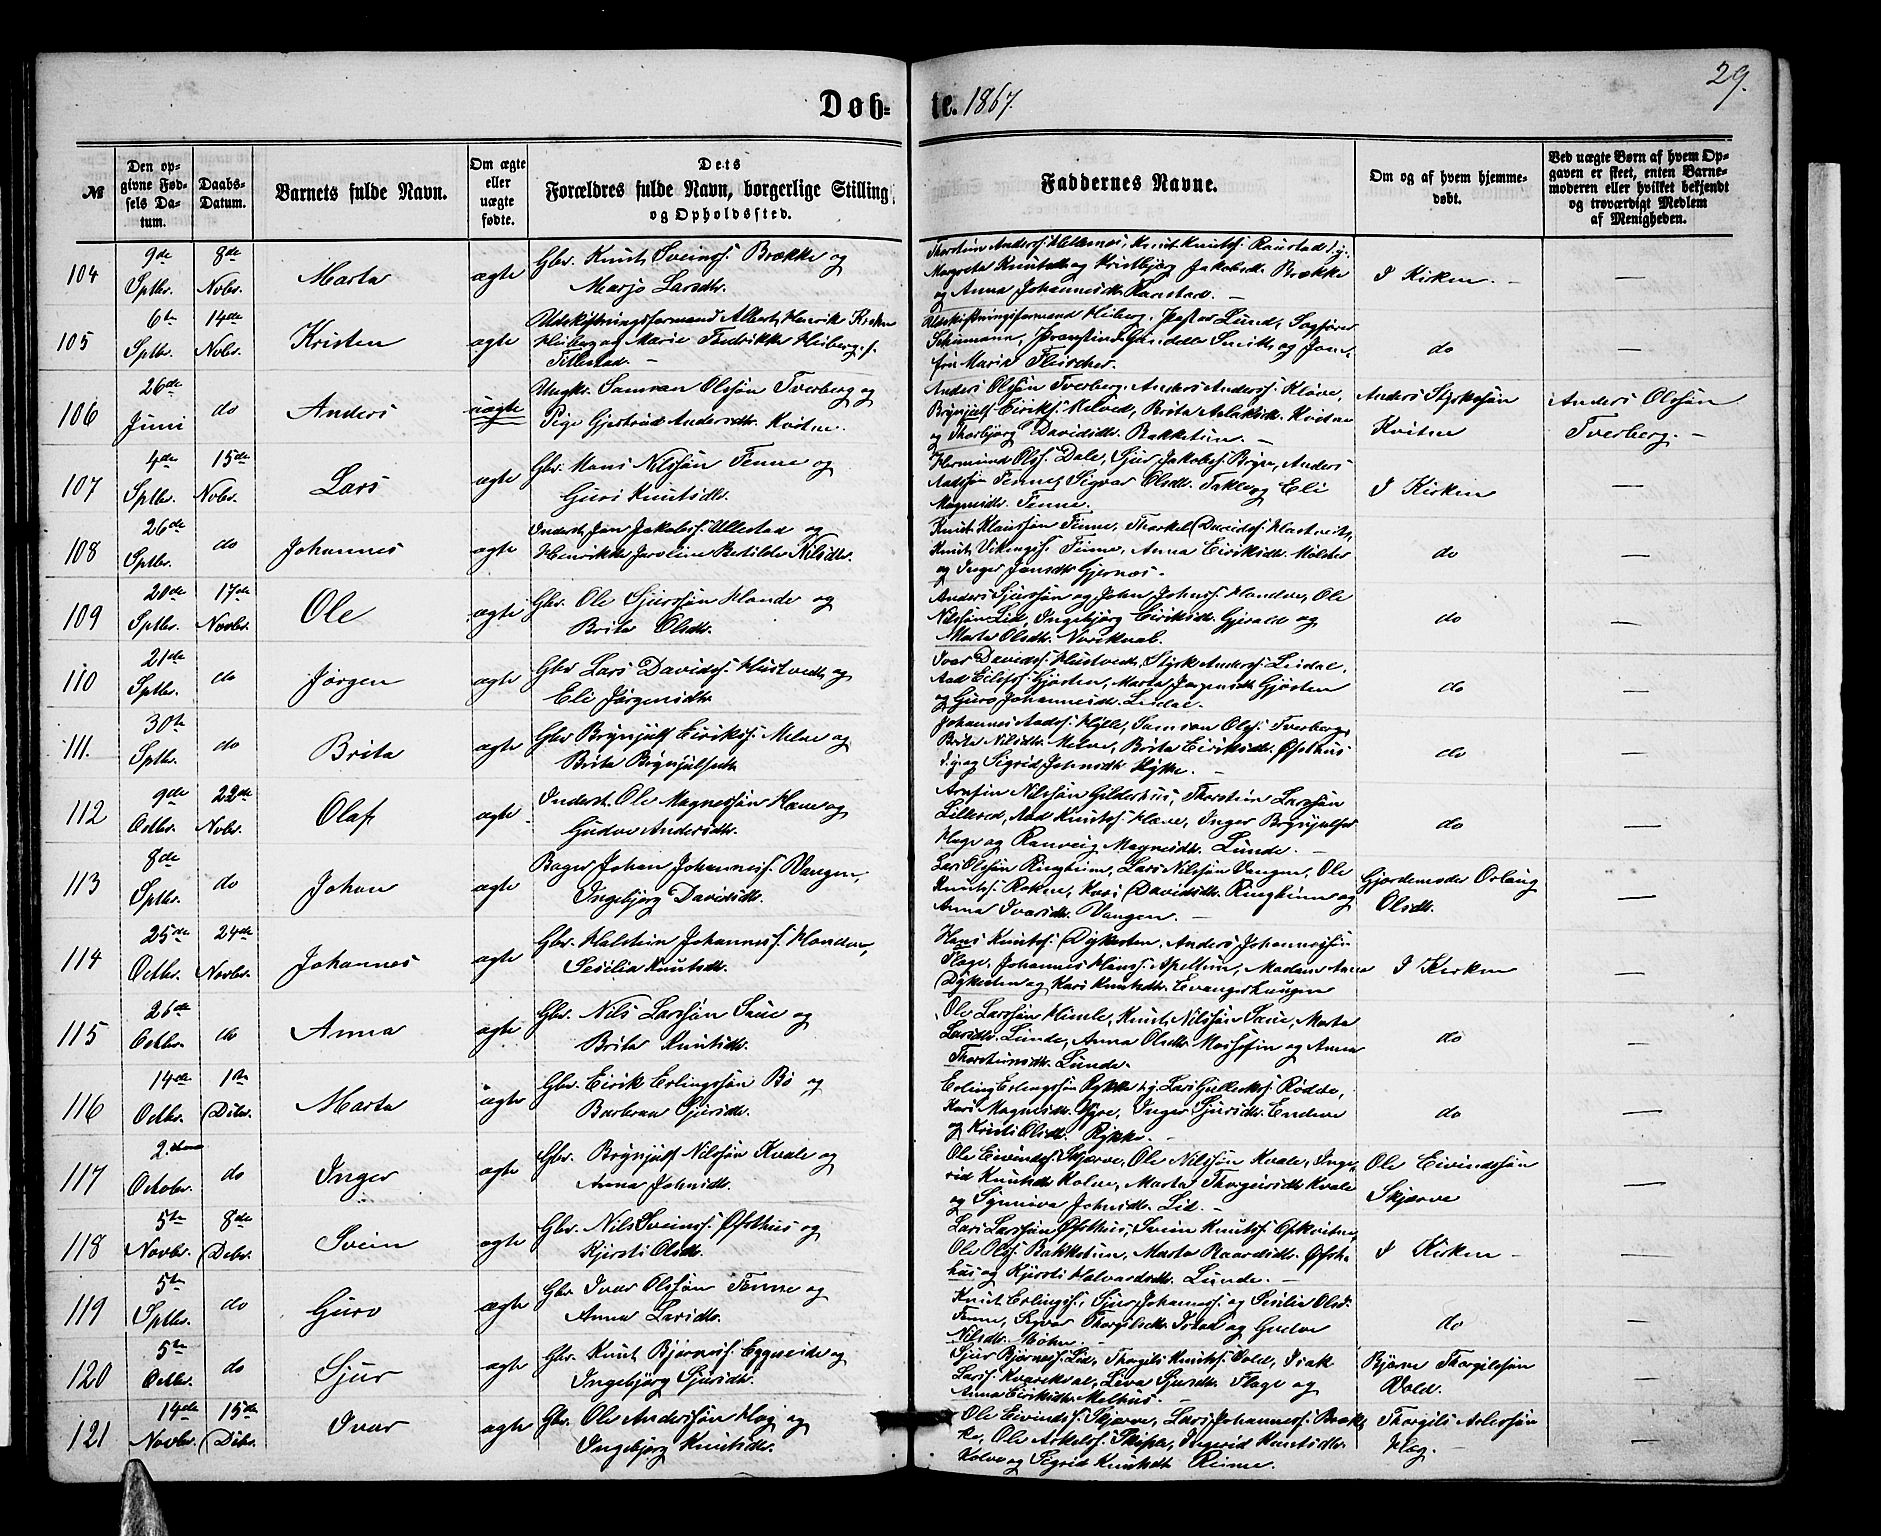 29.
Døb-
te. 1867.
№
Den op-
givne Fød-
sels Da-
tum.
Daabs-
Datum.
Barnets fulde Navn.
Om ægte
eller
uægte
fødte.
Dets
Forældres fulde Navn, borgerlige Stilling
og Opholdssted.
Faddernes Navne.
Om og af hvem hjemme-
døbt.
Ved uægte Børn af hvem Op-
gaven er skeet, enten Barne-
moderen eller hvilket bekjendt
og troværdigt Medlem
af Menigheden.
104
9de
Sptbr.
8de
Novbr.
Marta
ægte
Gbr. Knut Sveins. Brække og
Marjo Larsdtr.
Thorstein Anders. Knut Knuts. Raustad
Margreta Knutsdtr. og Kristbjørg Jakobsdtr. Brække
og Anna Johannesdtr. Raustad. —
I Kirken. —
—
105
6te
Sptbr.
14de
Novbr.
Kristen
ægte
Udskiftningsformand Albert Henrik
Heiberg og Marie Fredrikke Heiberg f.
—
Udskiftningsformand Heiberg, Pastor Lund, Sagfører
Schumann, og Jom-
fru Marie Fleischer.
do
—
106
26de
Juni
do
Anders
uægte
Ungkr. Samson Olssøn Tverberg og
Pige Gjertrud Andersdtr. Kvitne.
Anders Olssøn Tverberg, Anders Anders. Kløve,
Brynjulf Eiriks. Brita Aslaksdtr. Kvitne
og Thorbjørg Davidsdtr. Bakketun. —
Anders Styrkssøn
Kvitne
Anders Olssøn
Tverberg. —
107
4de
Sptbr.
15de
Novbr.
Lars
ægte
Gbr. Mons Nilssøn Tenne og
Guri Knutsdtr.
Hermund Ols. Dale, Sjur Jakobs. Anders
Tenne, Sigvor Olsdtr. og Eli
Magnesdtr. Tenne.
I Kirken
—
108
26de
Sptbr.
do
Johannes
ægte
Inderst Jon Jakobs. Ullestad og
Henrikke Jaroline Betilder Nilsdtr.
Knut Klaussøn Finne, Thorkel Davids.
Knut Vikings. Finne, Anna Eiriksdtr. Mølster
og Inger Jonsdtr. Gjernæs.
do
—
109
20de
Sptbr.
17de
Novbr.
Ole
ægte
Gbr. Ole Sjurssøn Hande og
Brita Olsdtr.
Anders Sjurssøn og John Johns. Ole
Nilssøn Lid, Ingebjørg Eiriksdtr. Gjerald og
Marta Olsdtr.
do
—
110
21de
Sptbr.
do
Jørgen
ægte
Gbr. Lars Davids. Hustvedt og
Eli Jørgensdtr.
Ivar Davids. Hustvedt, Styrk Anders. Leidal,
Aad Gjøsten, Marta Jørgensdtr. Gjøsten
og Guro Johannesdtr. Leidal.
do
—
111.
30te
Sptbr.
do
Brita
ægte
Gbr. Brynjulf Eiriks. Melve og
Brita Brynjulfsdtr.
Johannes Aads. Samson Ols. Tverberg,
Brita Nilsdtr. Melve, Brita Eiriksdtr. Øfsthus
og Sigrid Johnsdtr. —
do
—
112
9de
Octbr.
22de
Novbr.
Olaf
ægte
Inderst Ole Magnessøn Hæve og
Gudve Andersdtr.
Arnfin Nilssøn Gilderhus, Thorstein Larssøn
Aad Knuts. Hæve, Inger Brynjulfsdtr.
Flage og Ranveig Magnesdtr. Lunde. —
do
—
113
8de
Sptbr.
do
Johan
ægte
Bager Johan Johannes. Vangen,
Ingebjørg Davidsdtr.
Lars Olssøn Ringheim, Lars Nilssøn Vangen, Ole
Knuts. Rokne, Kari Davidsdtr. Ringheim og
Anna Ivarsdtr. Vangen. —
Gjordemoder Orlaug
Olsdtr.
—
114
25de
Octbr.
24de
Novbr.
Johannes
ægte
Gbr. Halstein Johannes.
Sesilia Knutsdtr.
Hans Knuts. Dykesten, Anders Johannessøn
Flage, Johannes Hans. Apeltun, Madam Anna
Dykesten og Kari Knutsdtr. Evangerlaugen
I Kirken
—
115
26de
Octbr.
do
Anna
ægte
Gbr. Nils Larssøn Saue og
Brita Knutsdtr.
Ole Larssøn Himle, Knut Nilssøn Saue, Marta
Larsdtr. Lunde, Anna Olsdtr. og Anna
Thorsteinsdtr. Lunde.
do
—
116
14de
Octbr.
1ste
Decbr.
Marta
ægte
Gbr. Eirik Erlingssøn Bø og
Barbraa Sjursdtr.
Erling Erlingssøn Rykke, Lars Gulleiks. Rødte,
Kari Magnesdtr. Gjøre, Inger Sjursdtr. Endeve
og Kristi Olsdtr. Rykke. —
do
—
117
2.den
October
do
Inger
ægte
Gbr. Brynjulf Nilssøn Kvale og
Anna Johnsdtr.
Ole Eivinds. Skjerve, Ole Nilssøn Kvale, Inge-
rid Knutsdtr. Kolve, Marta Thorgeirsdtr. Kvale
og Synneva Johnsdtr. Lid. —
Ole Eivindssøn
Skjerve
—
118
5te
Novbr.
8de
Decbr.
Svein
ægte
Gbr. Nils Sveins. Øfsthus og
Kjersti Olsdtr.
Lars Larssøn Øfsthus, Svein Knuts. Opkvitne,
Ole Ols. Bakketun, Marta Øfst-
hus og Kjersti Halvardsdtr. Lunde. —
I Kirken —
—
119
5te
Sptbr.
do
Guro
ægte
Gbr. Ivar Olssøn Tenne og
Anna Larsdtr.
Knut Erlings., Sjur Johannes. og Sesilia Olsd.
Tenne, Sigvor Thorgilsdtr. og Gudve
Nilsdtr.
do
—
120
5te
Octbr.
do
Sjur
ægte
Gbr. Knut Bjørnes. Eggereide og
Ingebjørg Sjursdtr.
Sjur Bjørnes. Lid, Thorgils Knuts. Vold, Isak
Lars. Kvarekval, Sjursdtr. Flage og
Anna Eiriksdtr. Melhus. —
Bjørn Thorgilssøn
Vold.
—
121
14de
Novbr.
15de
Decbr.
Ivar
ægte
Gbr. Ole Anderssøn Hæg og
Ingebjørg Knutsdtr.
Ole Eivinds. Skjerve, Lars Johannes. Bræk-
ke, Ole Askels. Skiple, Ingerid Knutsdtr.
Kolve og Sigrid Knutsdtr. Reime.
Thorgils Aslessøn
Hæg. —
—